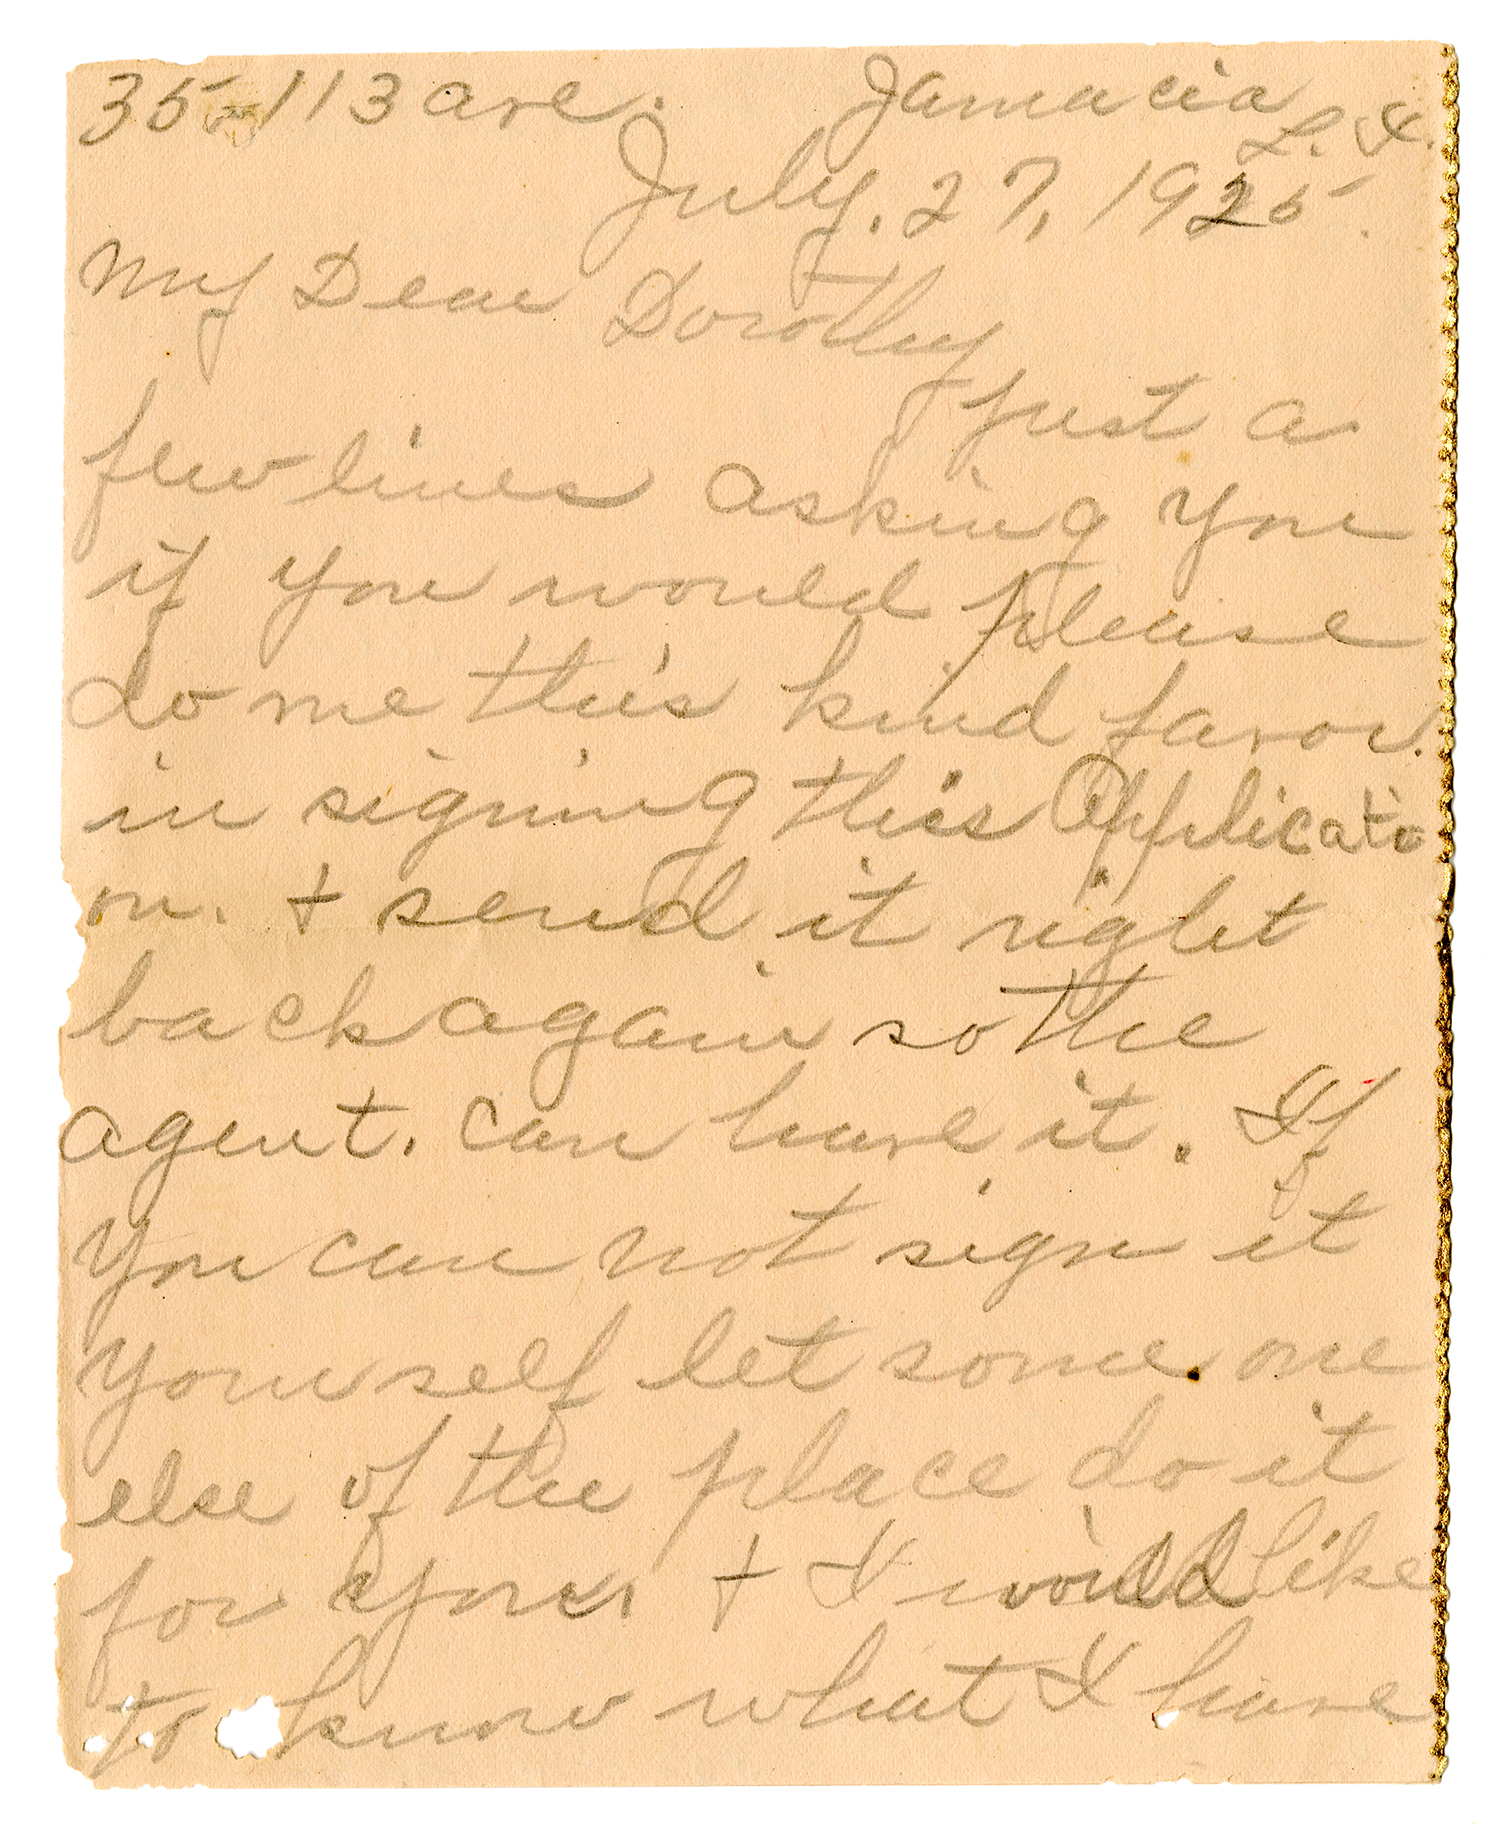 35-113 ave. Jamacia
L. I.
July. 27, 1925.
My Dear Dorothy
just a
few lines asking you
if you would please
do me this kind favor.
in signing this Applicatio
on. + send it right
back again so the
agent. can have it. If
you can not sign it
yourself let some one
else of the place do it
for you, + I would like
to know what I have